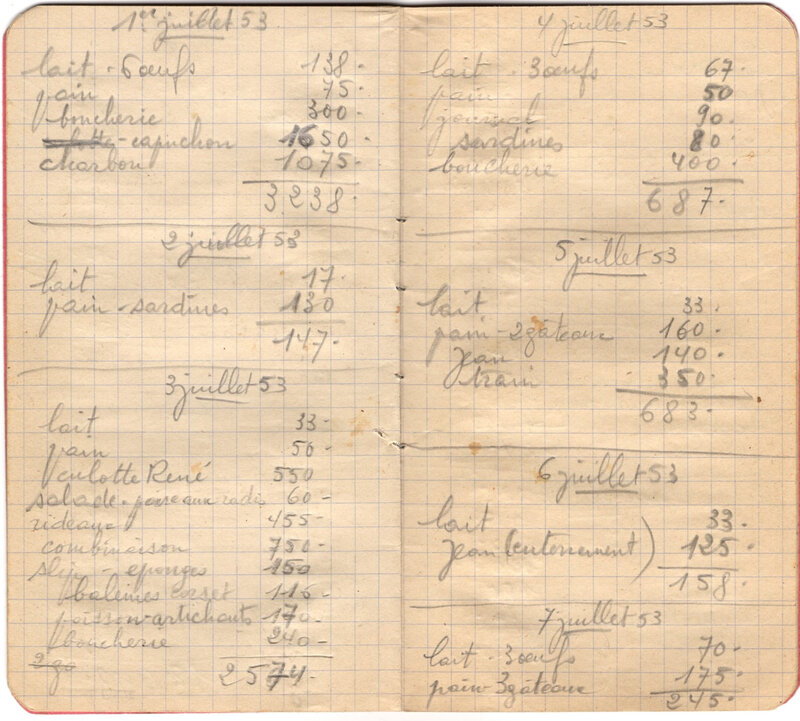 1er juillet 53
lait - 6 œufs 138.
pain 75.
boucherie 300.
capuchon 1650
charbon 1075.
3238.
2 juillet 53
lait 17.
pain - sardines 130
147.
3 juillet 53
lait 33.
pain 50.
culotte René 550
salade - poireaux radis 60-
rideaux 455-
combinaison 750-
slip - eponges 150
baleines corset 116-
poisson-artichauts 170-
boucherie 240-
2574.
4 juillet 53
lait - 3 œufs 67.
pain 50
journal 90.
sardines 80.
boucherie 400.
687.
5 juillet 53
lait 33.
pain - 2 gâteaux 160.
Jean 140.
train 350.
683.
6 juillet 53
lait 33.
Jean (enterrement) 125
158.
7 juillet 53
lait - 3 œufs 70.
pain - 3 gâteaux 175.
245.